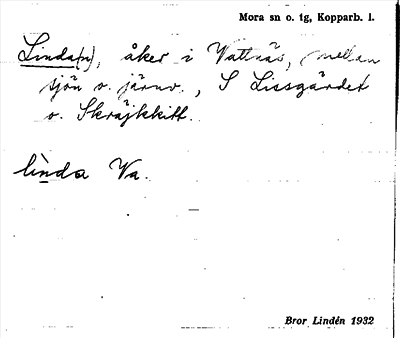 Mora sn o. tg, Kopparb. l.
Linda(n), åker i Vattnäs, mellan
sjön o. järnv., S Lissgärdet
o. Skräjkkitt.
lìnda Va.
Bror Lindén 1932